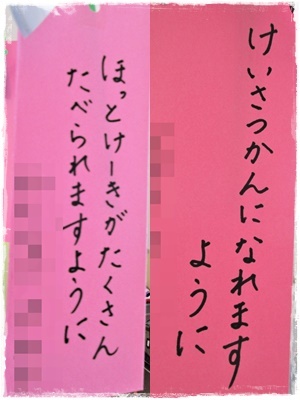 ほっとけーきがたくさん
たべられますように
けいさつかんになれます
ように